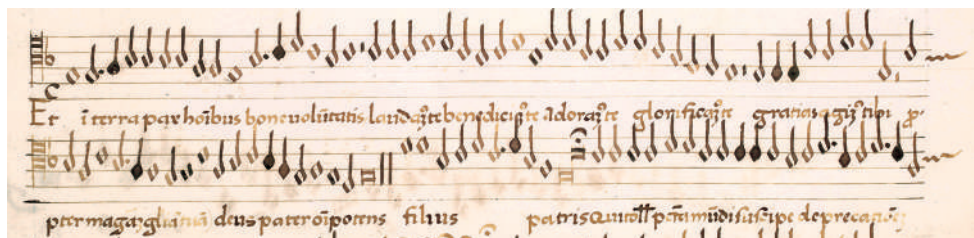 Et ī terra pax hoībus bone volūtatis laudaꝫ te benediciꝫ te adoraꝫ te glorificaꝫ te gratias agiꝫ tibi ꝓ
pter magā gliā tuā deus pater oīpotens filius patris Qui toll pctā mūdi suscipe